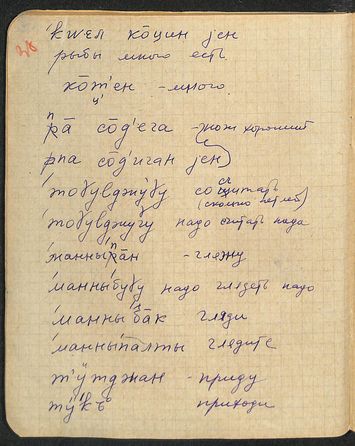 318
'kwел ко̄цин jен
рыбы много есть
ко̄т'ен - много
ц'
п
ра̄ со̄д'ега - нож хороший
рпа со̄д'иган jен
'тоɣувджуɣу сосчитать
сч
(сколько петлей)
'тоɣувджугу надо считать нада
'манныр̄а̄н - гляжу
'манныбуɣу надо глядеть надо
'манны'ба̄к гляди
'манныпалты глядите
т'ӱтджан - приду
тӱ'къ приходи